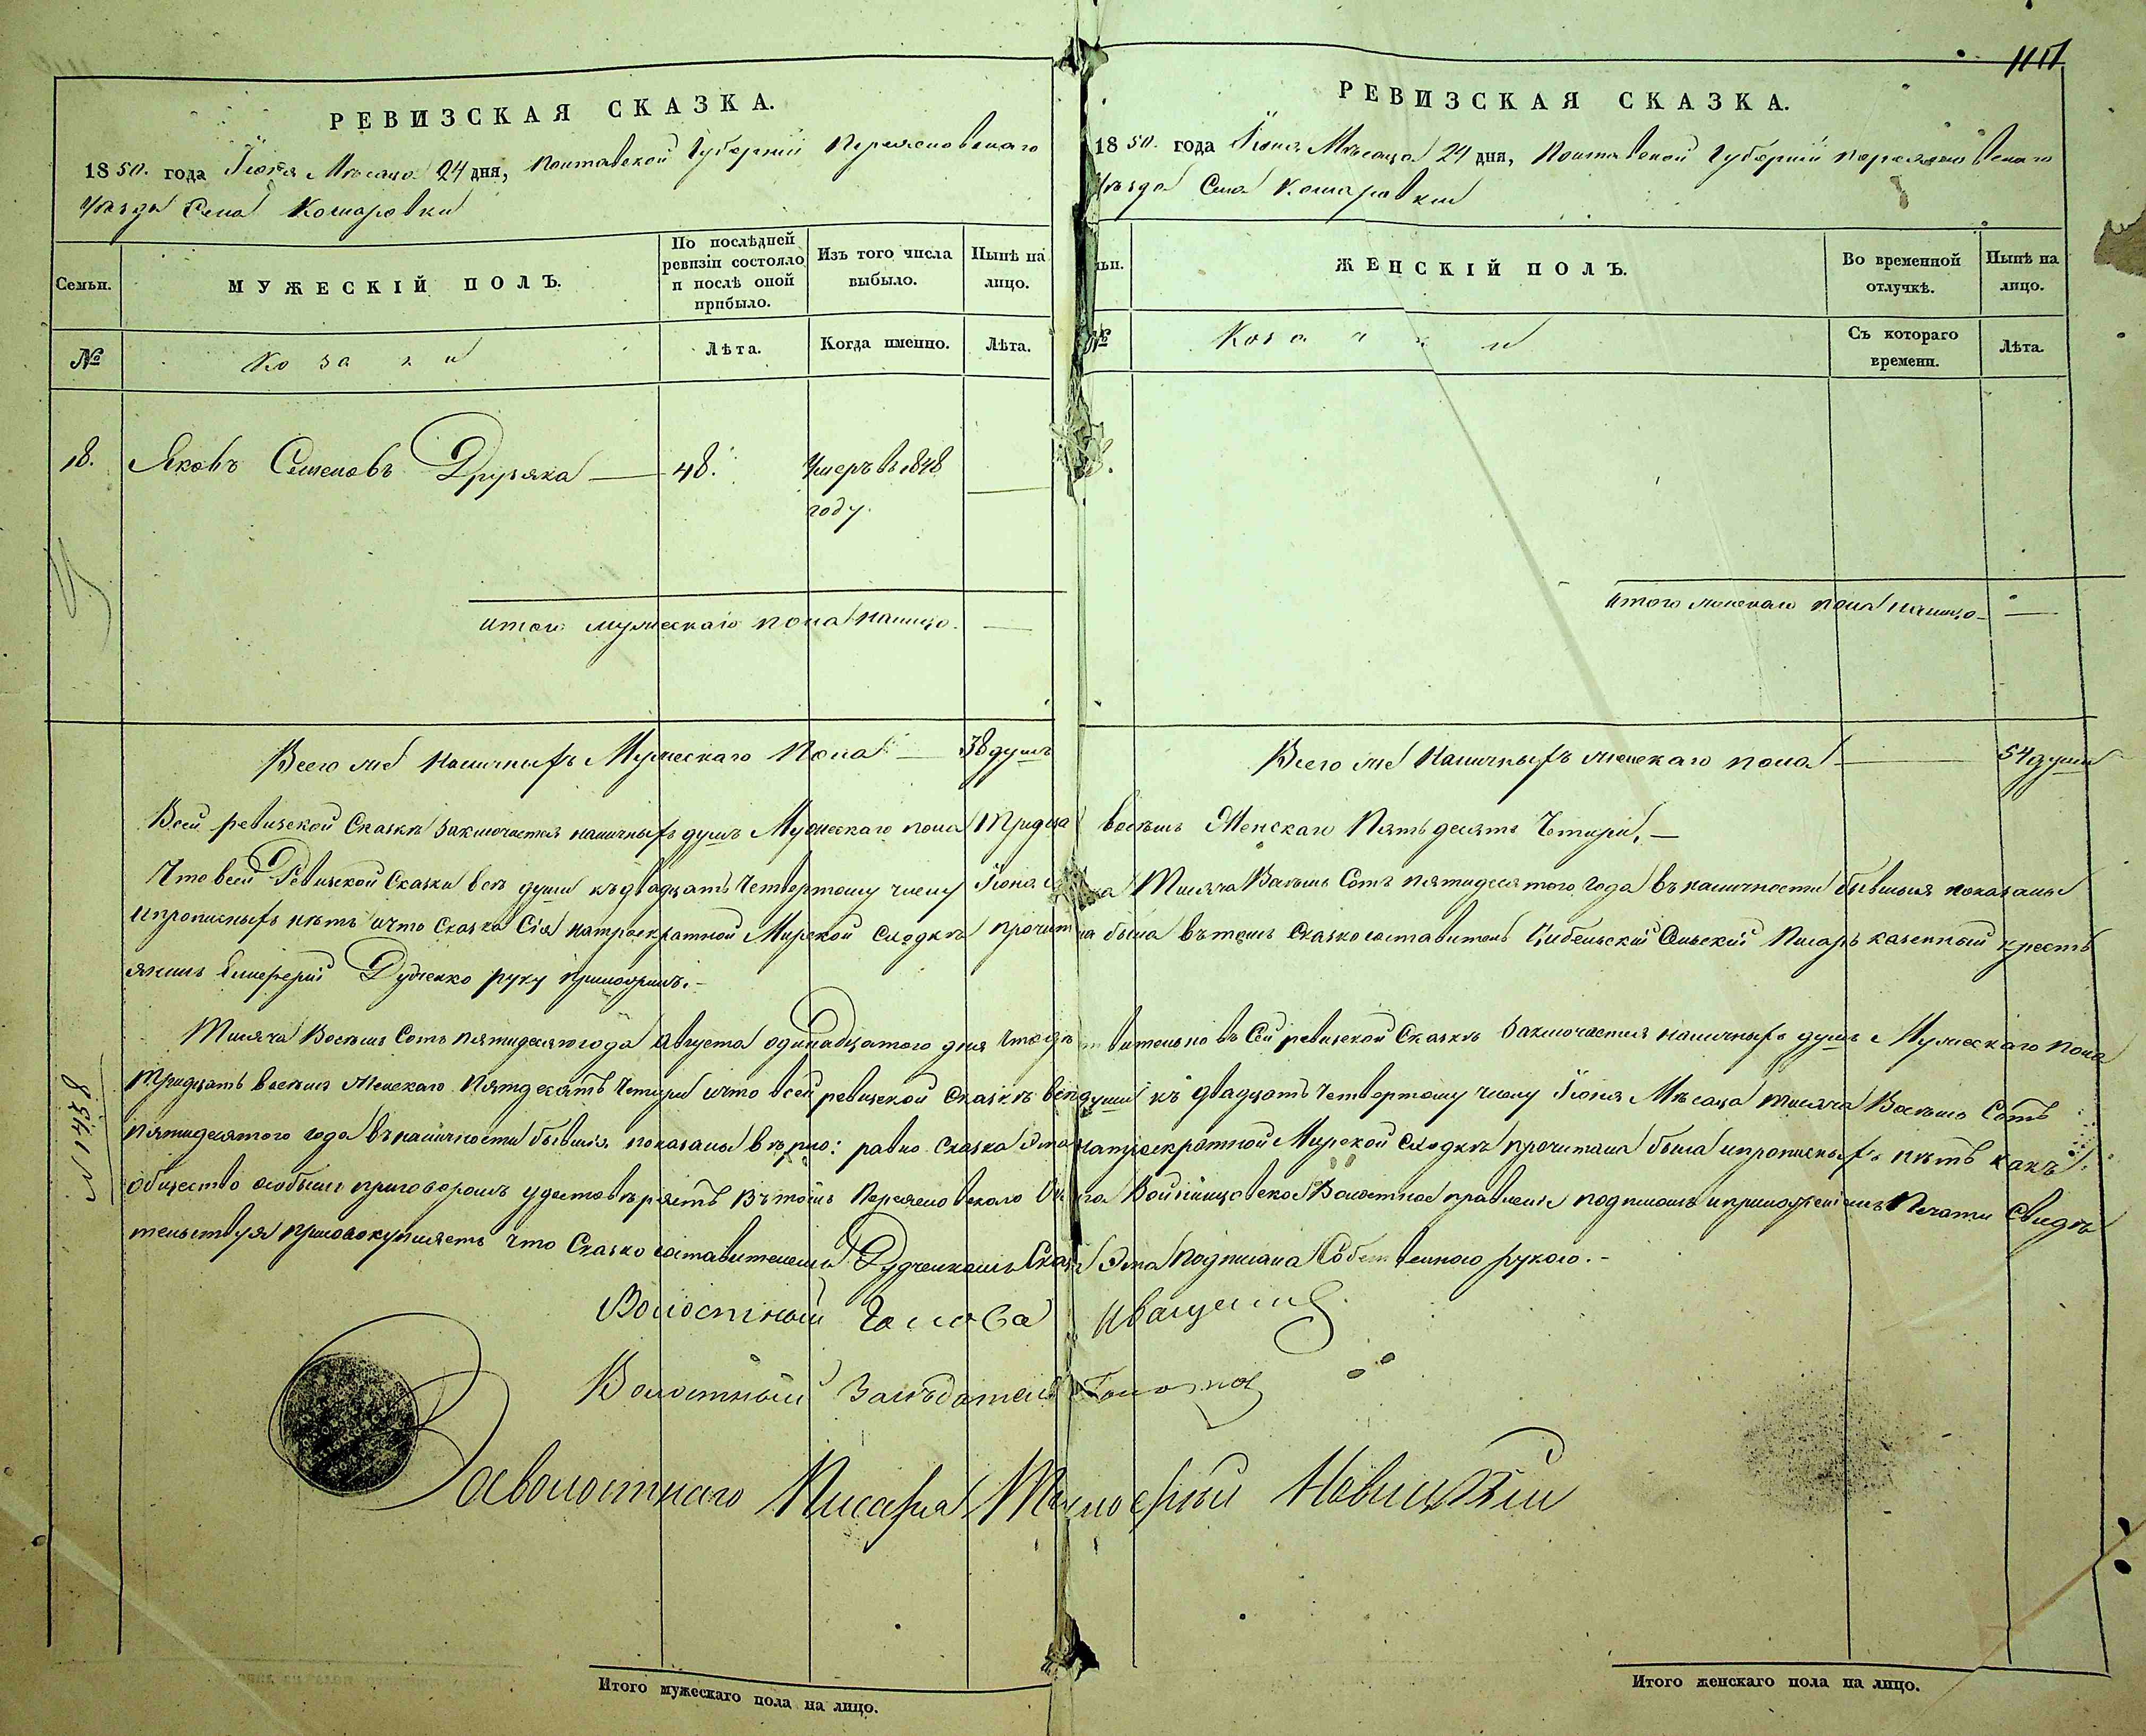 РЕВИЗСКАЯ СКАЗКА.
1850. года Іюня Мѣсяца 24 дня, Полтавской Губерніи Переяславскаго
Уѣзда Села Комаровки
Семьи.
МУЖЕСКІЙ ПОЛЪ.
По послѣдней ревизіи состояло и послѣ оной прибыло.
Изъ того числа выбыло.
Нынѣ на лицо.
№
Козаки
Лѣта.
Когда именно.
Лѣта.
18. Яковъ Семеновъ Друзяка — 48. Умеръ в 1848
году.
Итого мужескаго пола налицо. —
Всего же Наличныхъ Мужескаго Пола — 38 душъ
РЕВИЗСКАЯ СКАЗКА.
1850. года Іюня Мѣсяца 24 дня, Полтавской Губерніи Переяславскаго
Уѣзда Села Комаровки
ЖЕНСКІЙ ПОЛЪ.
Во временной отлучкѣ.
Нынѣ на лицо.
№
Козачки
Съ котораго времени.
Лѣта.
Итого женскаго пола налицо —
Всего же Наличныхъ женскаго пола — 54 души
Всей ревизской Сказкѣ заключается наличныхъ душъ Мужескаго пола Тридца восемь Женскаго Пятьдесятъ Четыри, —
Что всей Ревизской Сказки всѣ души къ двадцать Четвертому числу Іюня Тысяча Восемь Сотъ пятидесятого Года въ наличности бывшия показаны
и прописныхъ нѣтъ и что Сказка Сія на троекратной Мирской Сходкѣ прочитана была въ томъ Сказкосоставитель Цибельскій Сельскій Писарь казенный кресть
янинъ Дудченко руку приложилъ. —
Тысяча Восемь Сотъ пятидесятого года Августа одинадцатого дня Что дѣйствительно въ Сей ревизской Сказкѣ Заключается наличныхъ душъ Мужескаго пола
Тридцать восемь Женскаго Пятдесятъ Четыри и что всей ревизской Сказкѣ всѣ души къ двадцать Четвертому числу Іюня Мѣсяца тысяча Восемь Сотъ
пятидесятого года въ наличности бывшія показаны вѣрно: равно Сказка Эта на троекратной Мирской Сходкѣ прочитана была и прописныхъ нѣтъ какъ
общество особымъ приговоромъ удостовѣряетъ Въ томъ Переяславскаго Войтовское Волостное правленіе подписомъ и приложеніемъ Печати Свидѣ
тельствуя присовокупляетъ что Сказкосоставителемъ Дудченкомъ Сказка Эта подписана Собственною рукою. —
Волостный Голова Иващенко
Волостный Засѣдатель
За волостнаго Писаря Тимофей Новицкій
Итого мужескаго пола на лицо.
Итого женскаго пола на лицо.